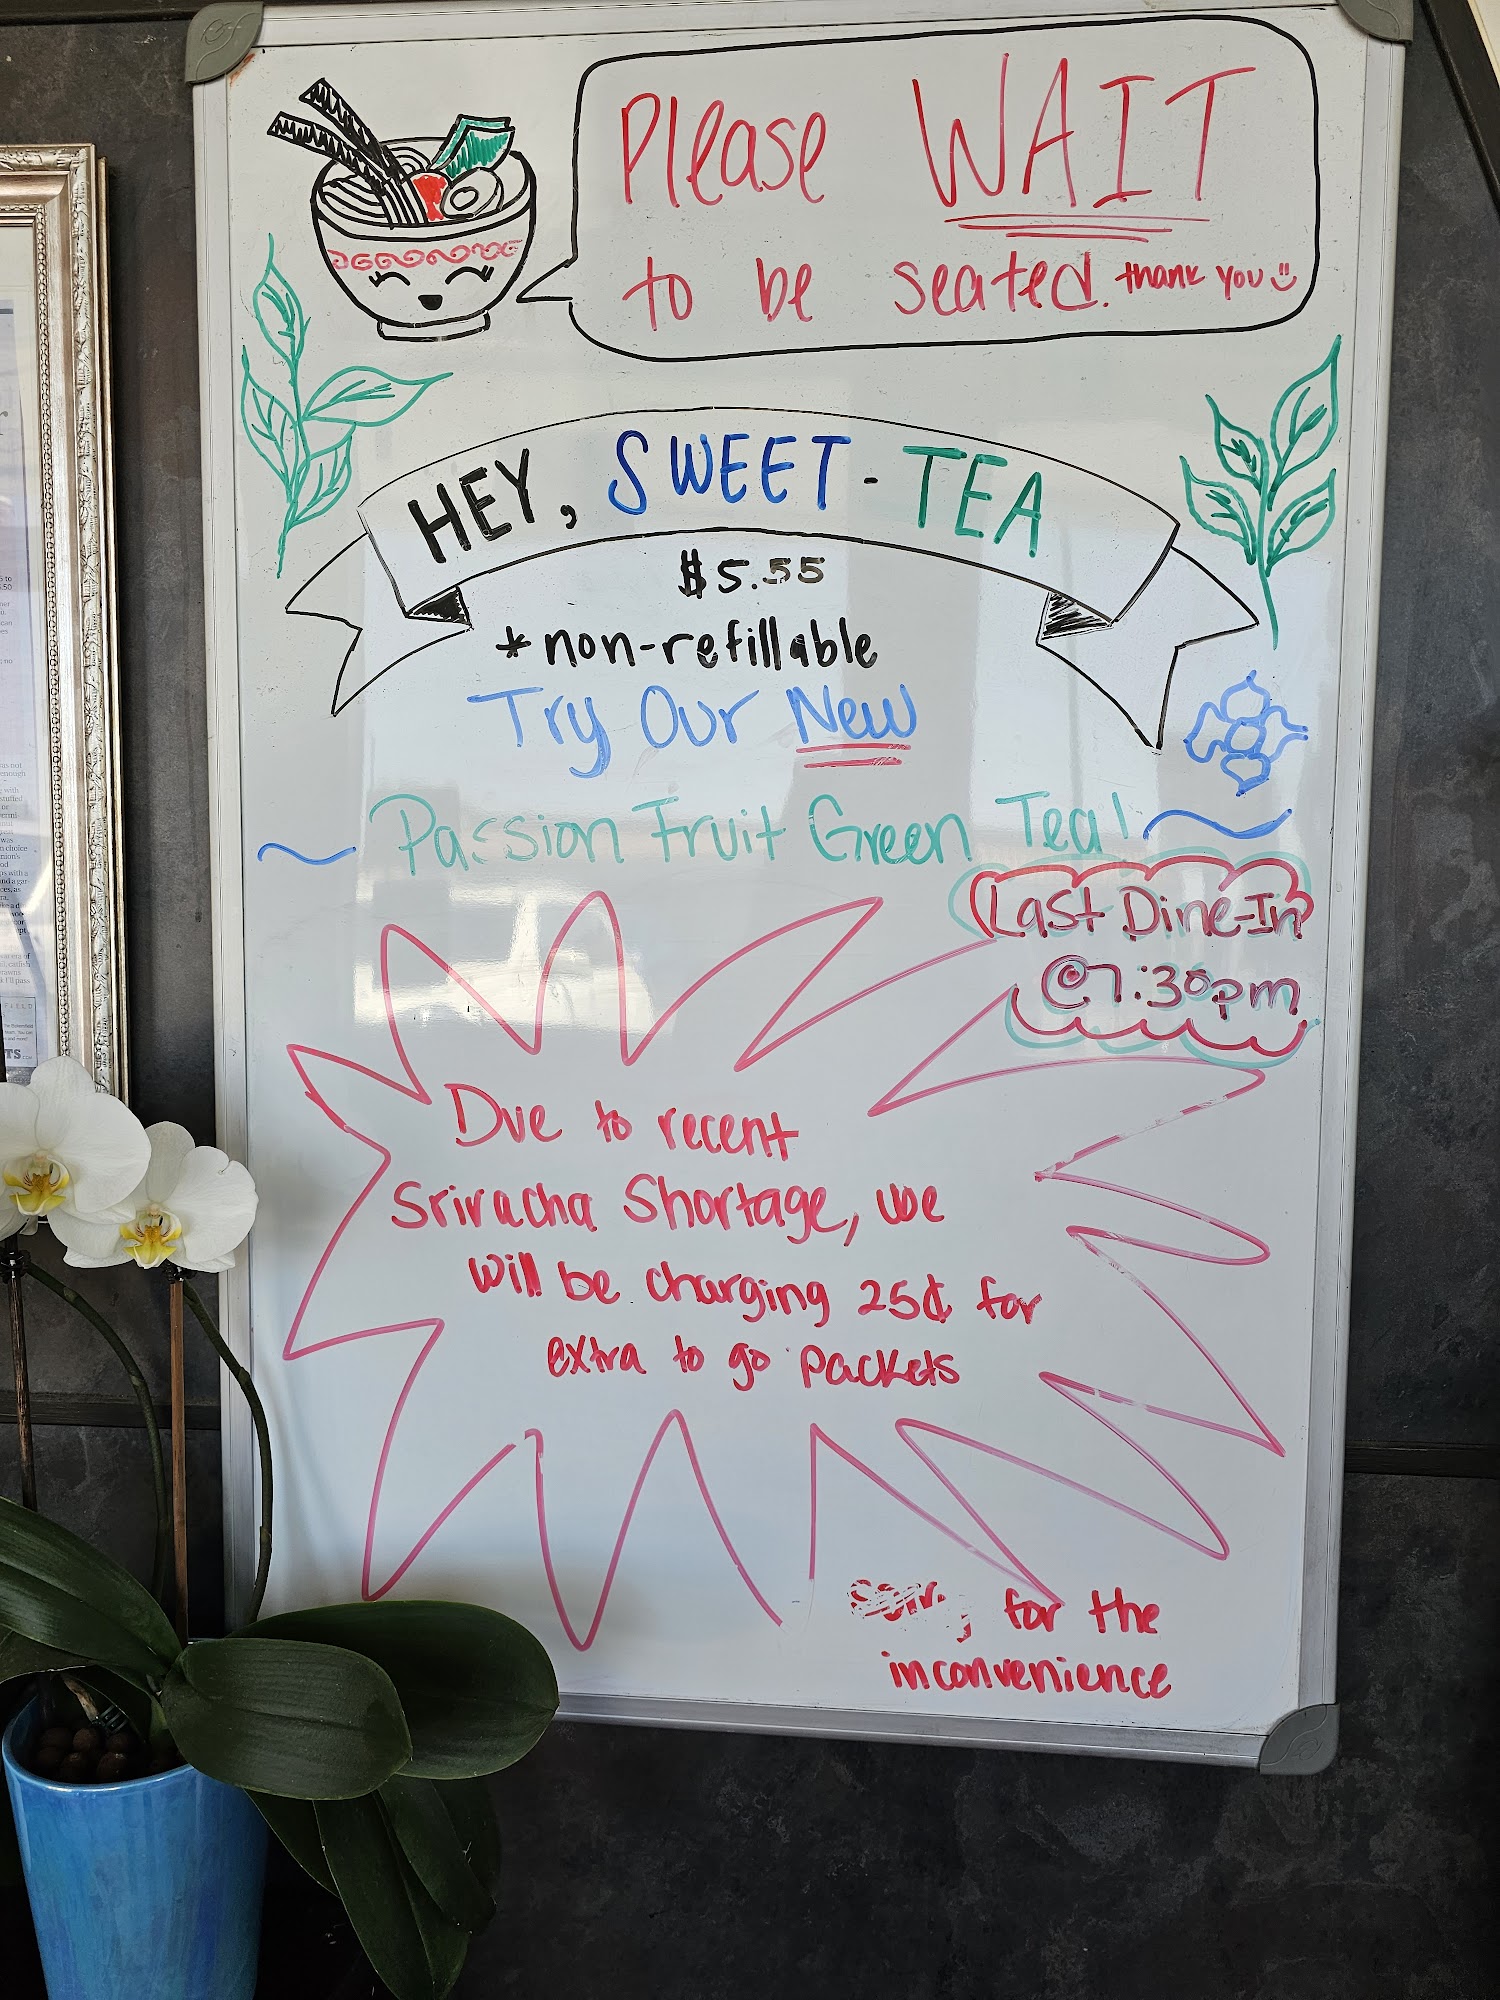 Please WAIT
to be seated. thank you
HEY, SWEET-TEA
$5.55
*non-refillable
Try Our New
Passion Fruit Green Tea!
Last Dine-In
@7:30pm
Due to recent
Sriracha Shortage, we
will be charging 25¢ for
extra to go packets
Sorry for the
inconvenience